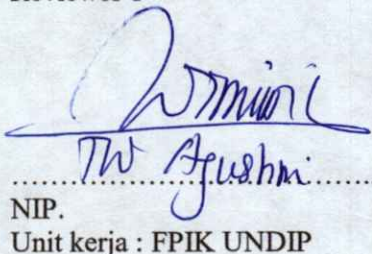 TW Agustini
NIP.
Unit kerja : FPIK UNDIP